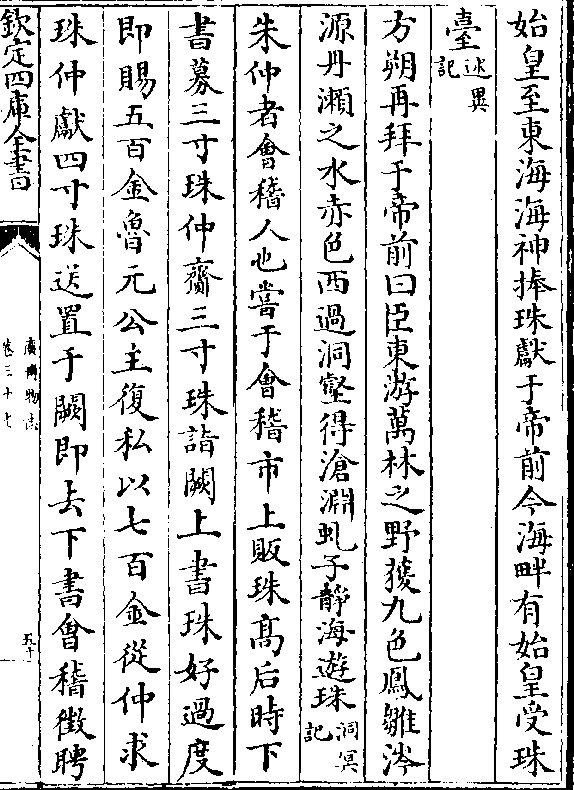 始皇至東海海神捧珠獻于帝前今海畔有始皇受珠
臺述異記
方朔再拜于帝前曰臣東游萬林之野獲九色鳳雛涔
源丹瀨之水赤色西過洞壑得滄淵虬子靜海遊珠洞冥記
朱仲者會稽人也嘗于會稽市上販珠髙后時下
書募三寸珠仲齎三寸珠詣闕上書珠好過度
即賜五百金魯元公主復私以七百金從仲求
珠仲獻四寸珠送置于闕即去下書會稽徴聘
欽定四庫全書
廣博物志
卷三十七
五十